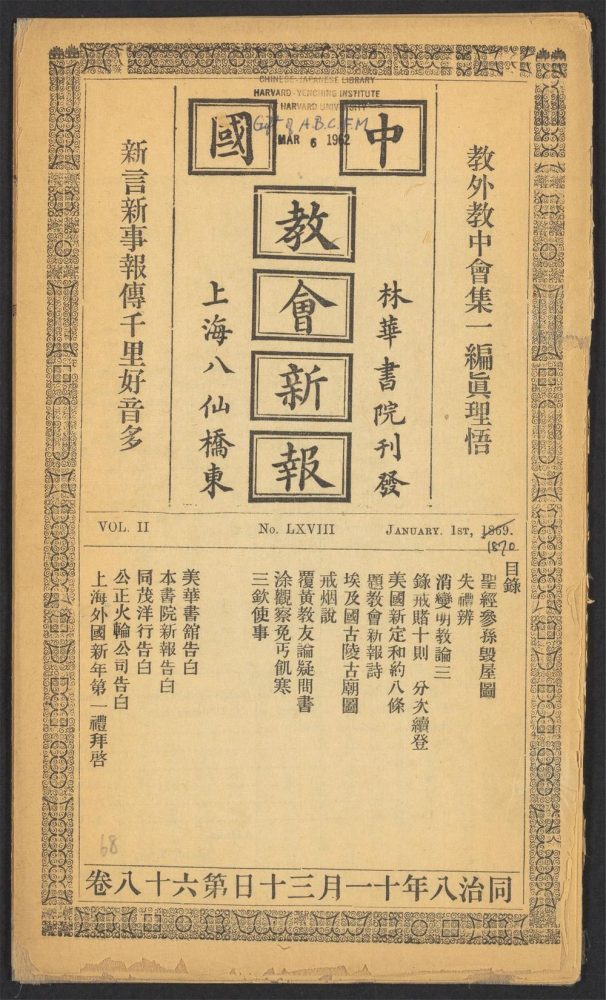 CHINESE-JAPANESE LIBRARY
HARVARD-YENCHING INSTITUTE
HARVARD UNIVERSITY
Gift of A.B.C.F.M.
MAR 6 1962
中國
教會新報
教外教中會集一編眞理悟
林華書院刊發
上海八仙橋東
新言新事報傳千里好音多
VOL. II
No. LXVIII
JANUARY. 1ST, 1869.
1870
目錄
聖經參孫毀屋圖
失禮辨
消變明教論三
錄戒賭十則 分次續登
美國新定和約八條
題教會新報詩
埃及國古陵古廟圖
戒烟說
覆黃教友論疑問書
涂觀察免丐飢寒
三欽使事
美華書館告白
本書院新報告白
同茂洋行告白
公正火輪公司告白
上海外國新年第一禮拜啓
68
卷八十六第日十三月一十年八治同